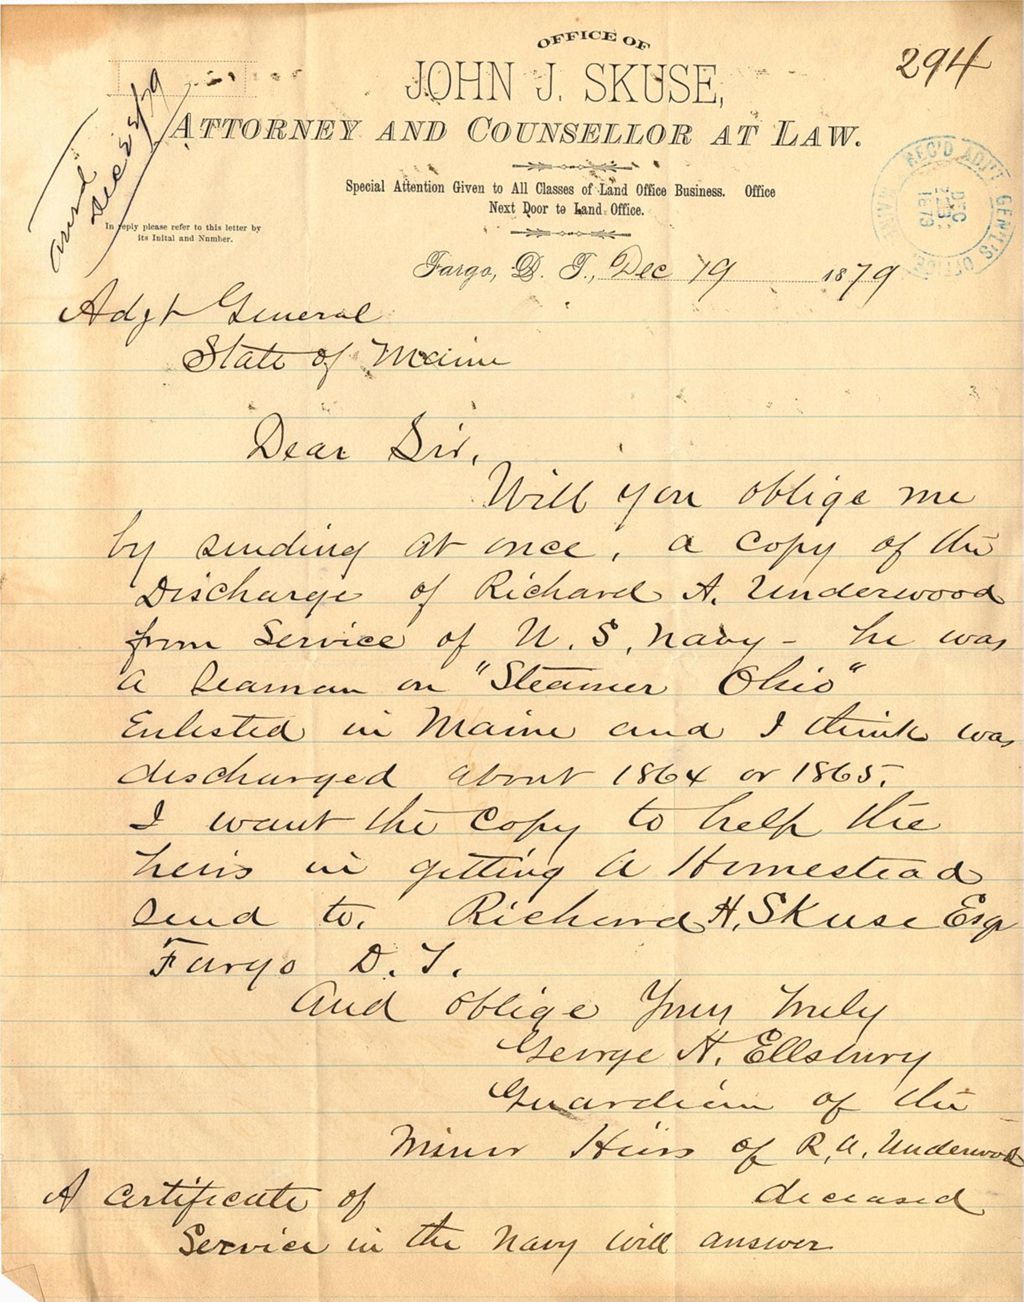 OFFICE OF
JOHN J. SKUSE,
294
ATTORNEY AND COUNSELLOR AT LAW.
Special Attention Given to All Classes of Land Office Business. Office
Next Door to Land Office.
In reply please refer to this letter by
its Inital and Number.
Dec 23/79
REC'D ADJ'T GEN'L'S OFFICE
DEC
23
1879
MAINE
Fargo, D. T., Dec 19 1879
Adgt General
State of Maine
Dear Sir,
Will you oblige me
by sending at once, a copy of the
Discharge of Richard A. Underwood
from Service of U. S. Navy - he was
a seaman on "Steamer Ohio"
Enlisted in Maine and I think was
discharged about 1864 or 1865.
I want the Copy to help the
heirs in getting a Homestead
send to. Richard H. Skuse Esq
Fargo D. T.
And oblige Yours truly
George H. Ellsbury
Guardian of the
Minor Heirs of R. A. Underwood
deceased
A Certificate of
Service in the Navy will answer